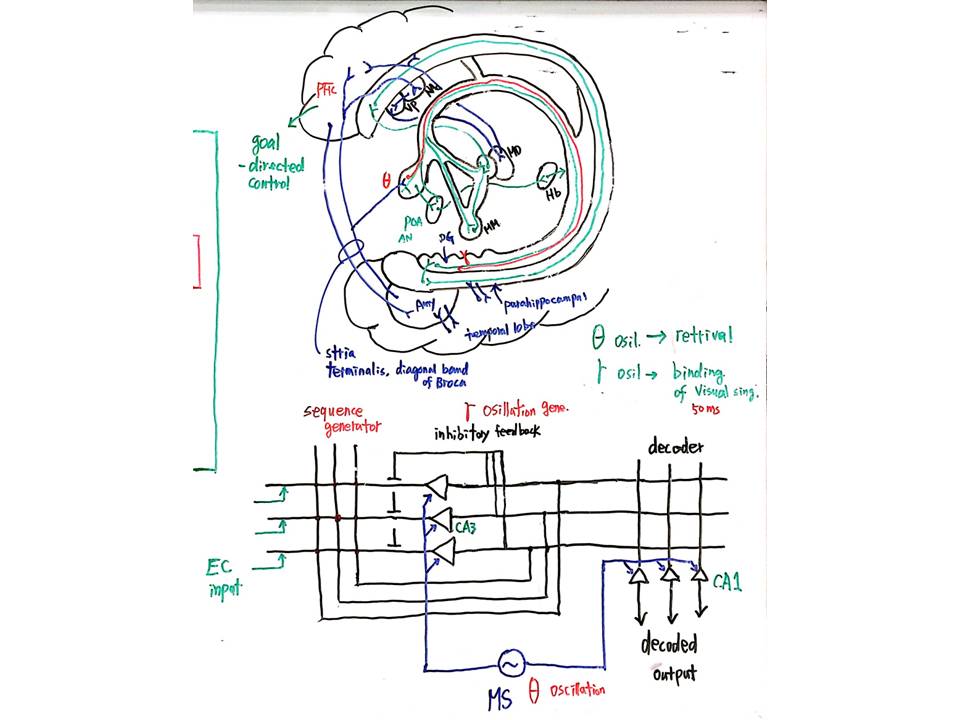 PFC
VP
NA
goal
- directed
control
θ
MD
Hb
POA
AN
DG
MM
γ
Amy
parahippocampus
temporal lobe
stria
terminalis, diagonal band
of Broca
θ osil. → retrival
γ osil → binding
of visual sing.
50 ms
sequence
generator
γ osillation gene.
inhibitory feedback
decoder
CA3
EC
input
CA1
decoded
output
MS
θ oscillation